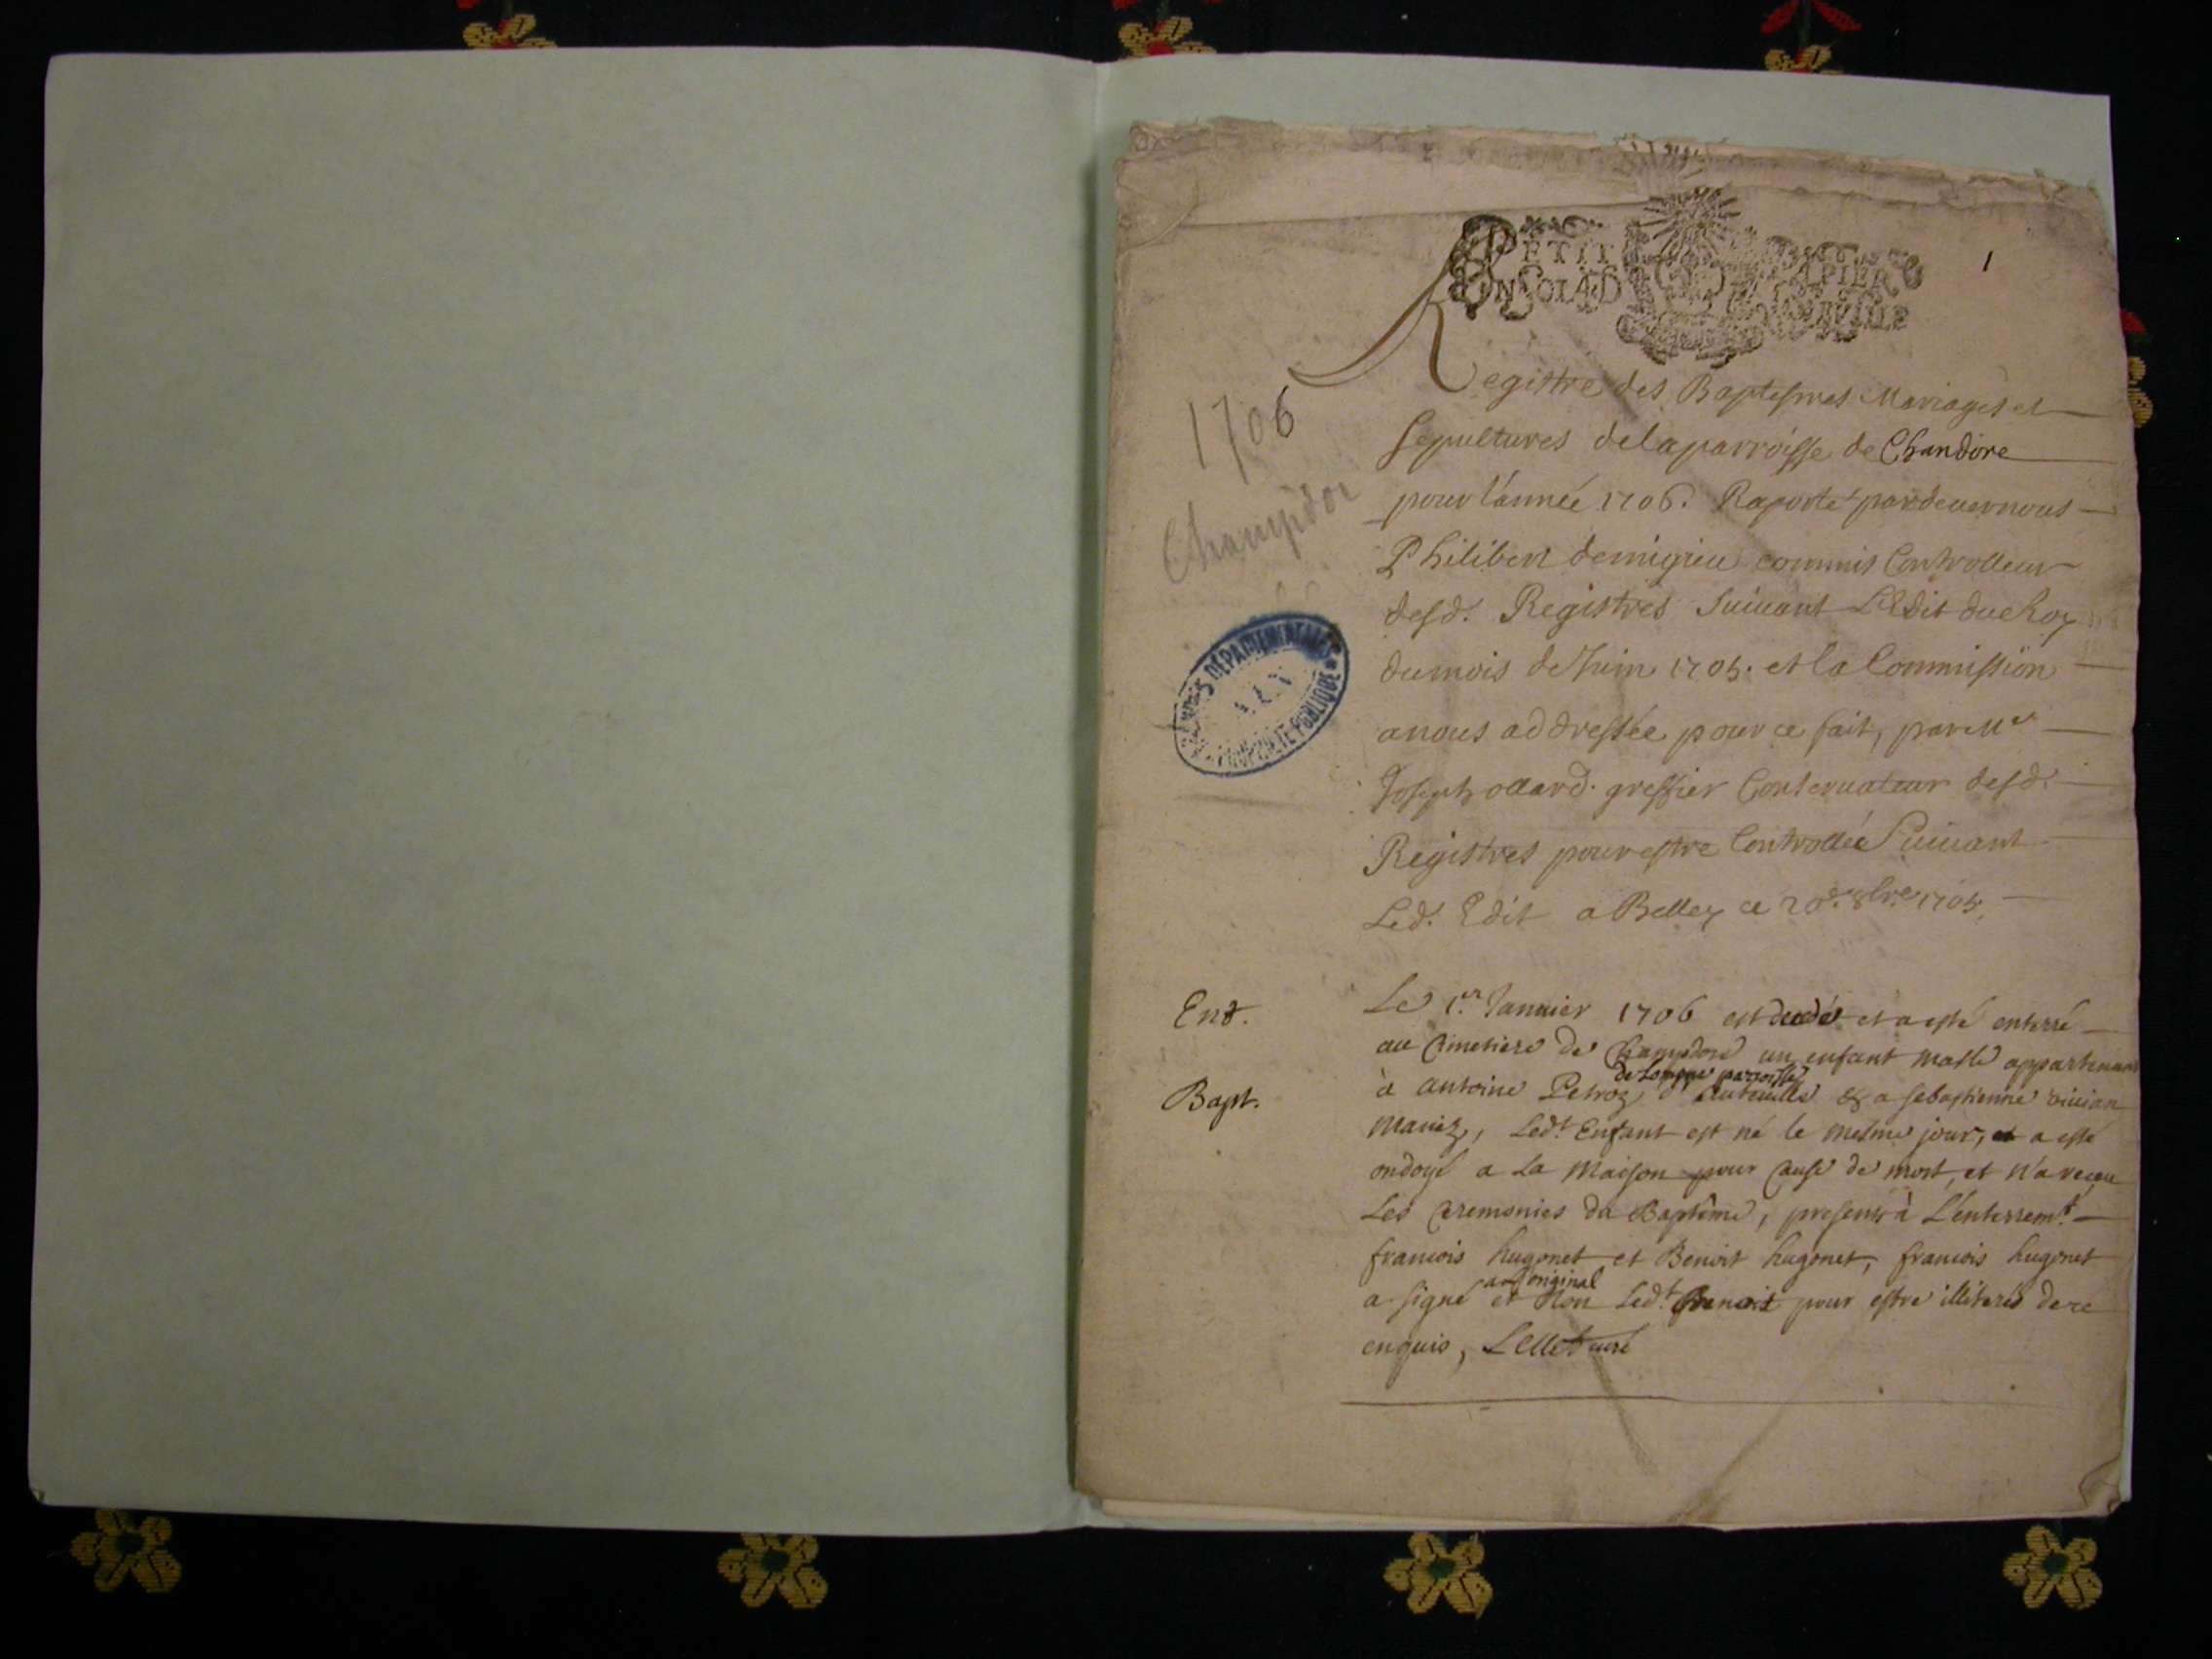 1
PETIT PAPIER
UN SOL
Registre des Baptesmes Mariages et
sepultures de la parroisse de Chandore
pour l'année 1706. Raporté pardevernous
Philibert demigieu commis Controlleur
desd. Registres suiuant L'Edit du Roy
du mois de Juin 1705. et la Commission
a nous addressée pour ce fait, par Me
Joseph ollard. greffier Conseruateur desd.
Registres pour estre Controllée Suiuant
Led. Edit a Belley ce 20e. 8bre 1705.
1706
Champdor
ARCHIVES DÉPARTEMENTALES
AIN
PROPRIÉTÉ PUBLIQUE
Ent.
Bapt.
Le 1.er Januier 1706 est decedé et a esté enterré
au Cimetiere de Champdore un enfant masle appartenant
de Lompne parroisse
à antoine Petroz d'hauteuille & a sebastienne viuian
Mariez, Led.t Enfant est né le mesme jour, et a esté
ondoyé a La Maison pour cause de mort, et n'a receu
Les Ceremonies du Baptême, presents à L'enterrem.t
francois hugonet et Benoit hugonet, francois hugonet
a l'original
a signé et Non Led.t Benoit pour estre illiteré de ce
enquis, curé